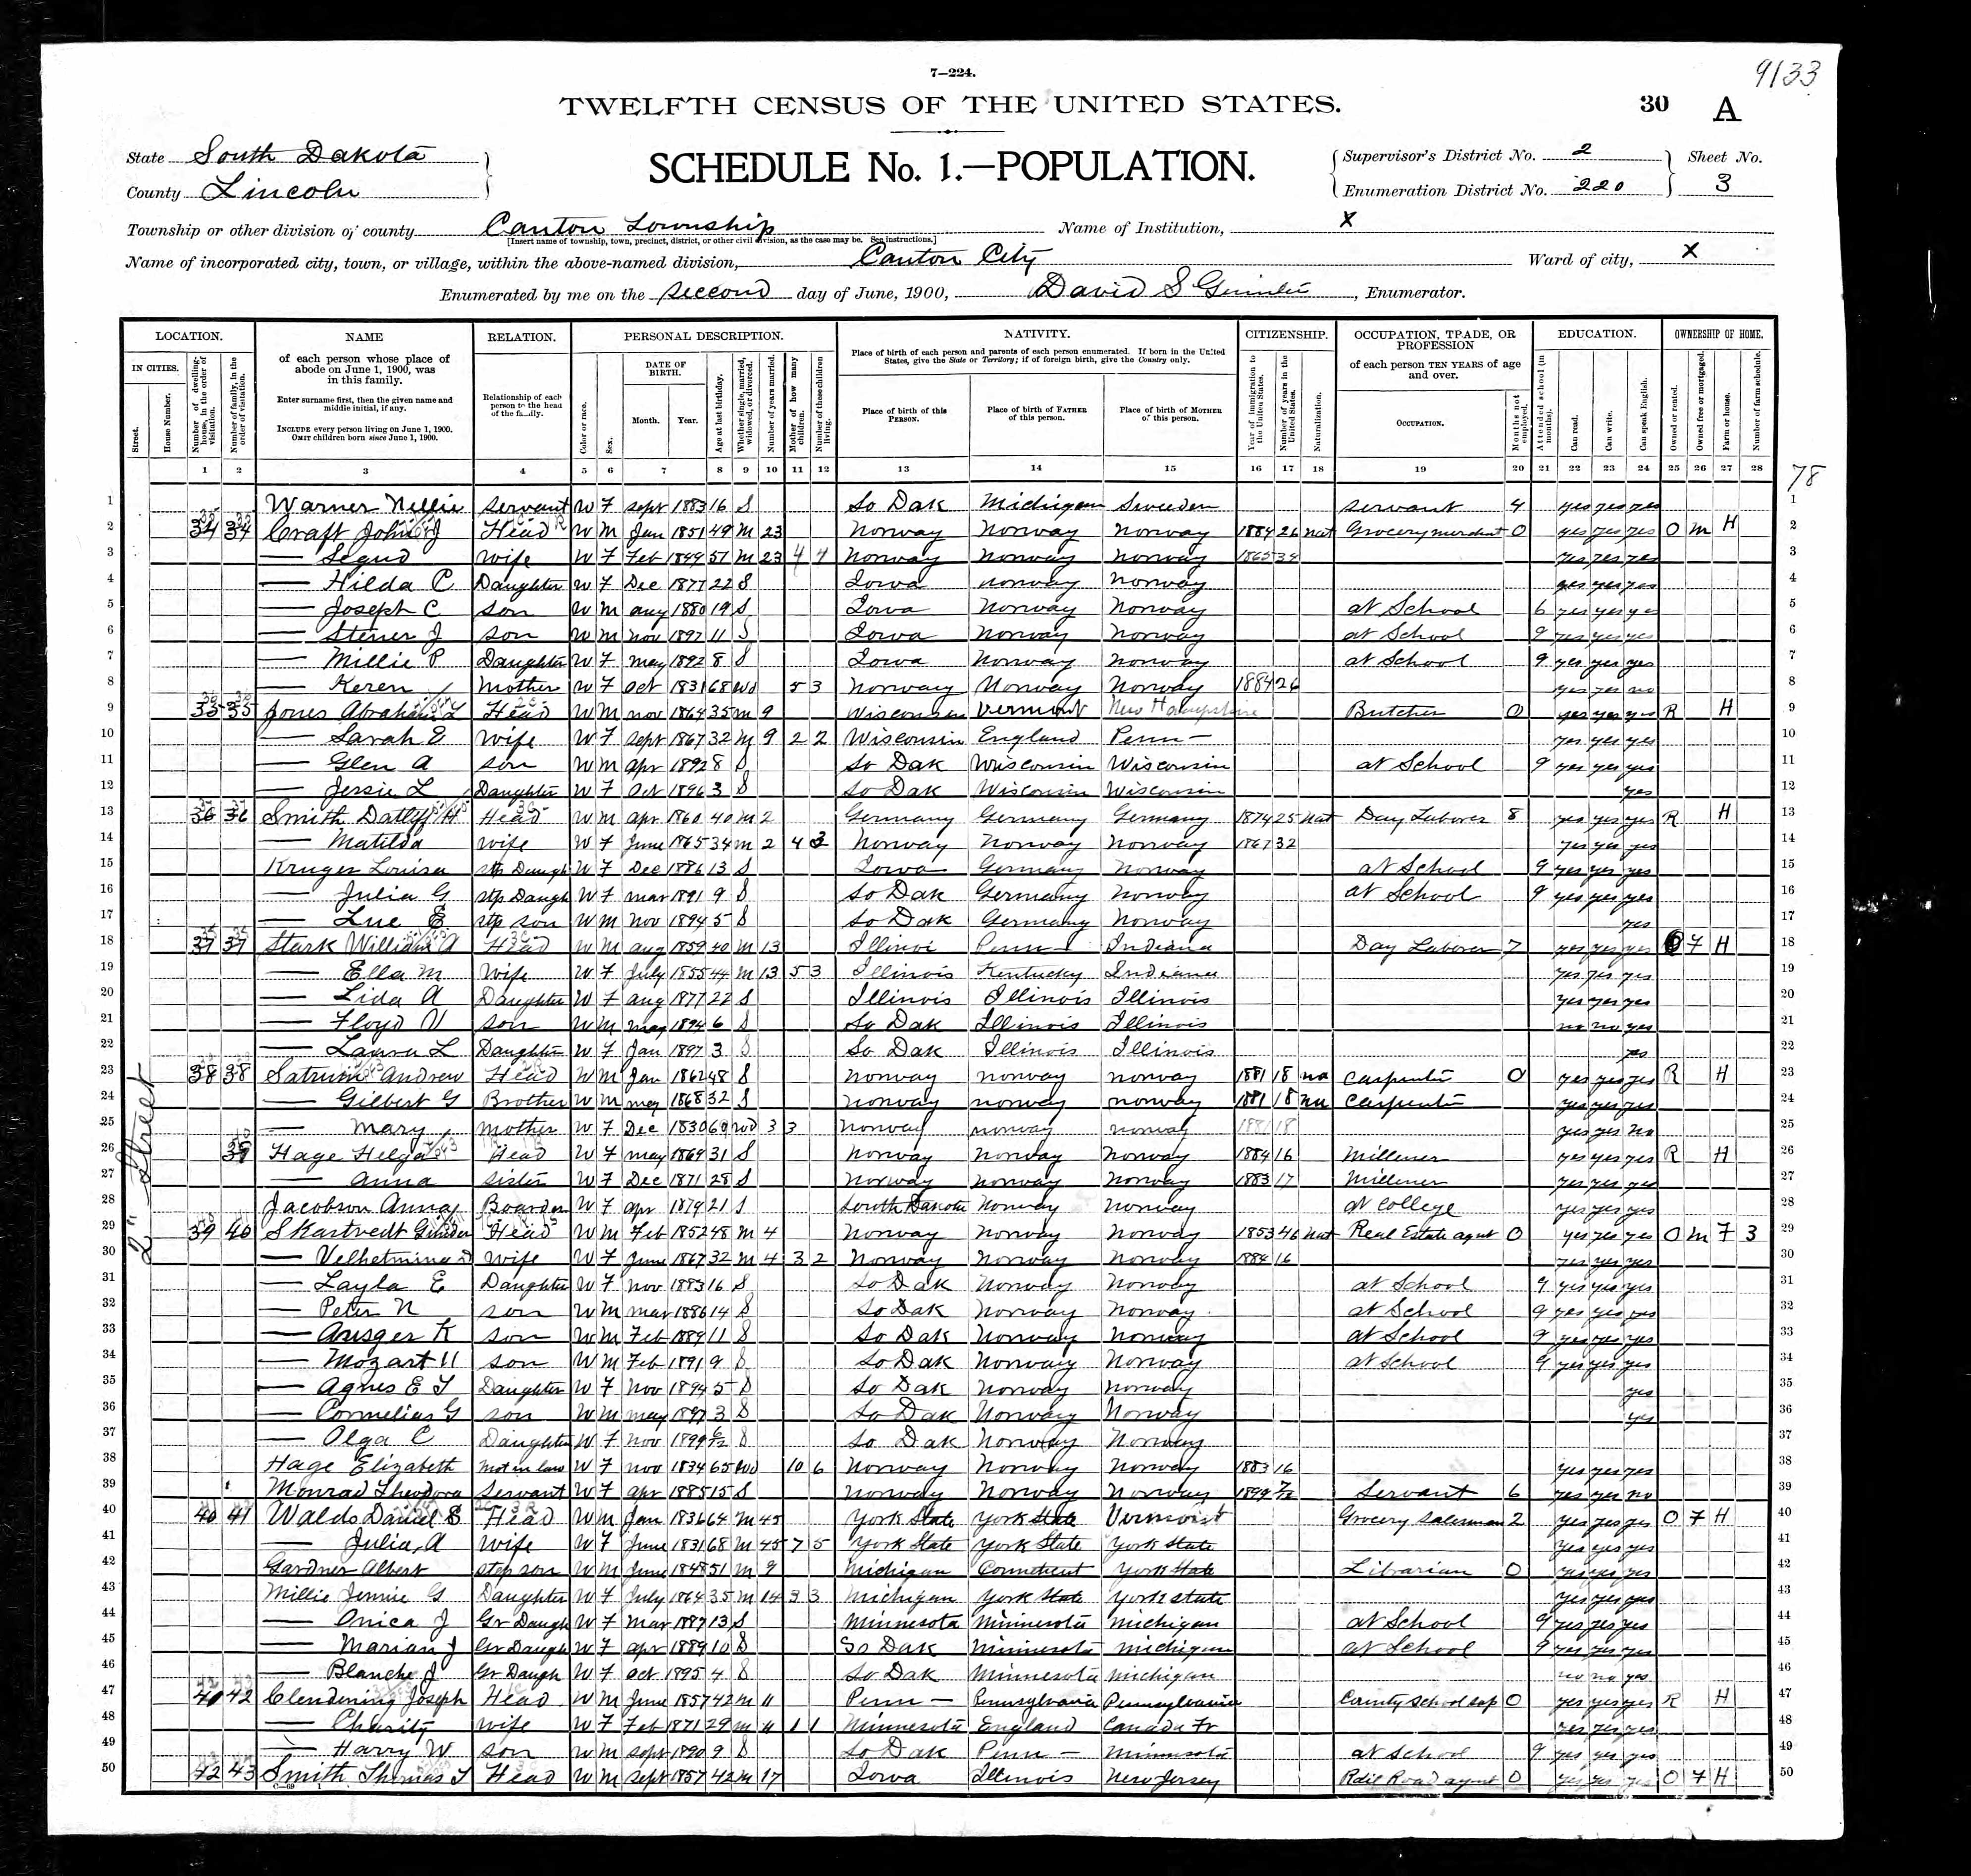 9133
7—224.
TWELFTH CENSUS OF THE UNITED STATES.
30 A
State South Dakota
County Lincoln
SCHEDULE No. 1.—POPULATION.
Supervisor's District No. 2
Enumeration District No. 220
Sheet No. 3
Township or other division of county Canton Township
[Insert name of township, town, precinct, district, or other civil division, as the case may be. See instructions.]
Name of Institution, X
Name of incorporated city, town, or village, within the above-named division, Canton City
Ward of city, X
Enumerated by me on the second day of June, 1900, David S , Enumerator.
LOCATION. NAME RELATION. PERSONAL DESCRIPTION. NATIVITY. CITIZENSHIP. OCCUPATION, TRADE, OR PROFESSION EDUCATION. OWNERSHIP OF HOME.
IN CITIES. Street. House Number.
Number of dwelling-house, in the order of visitation.
Number of family, in the order of visitation.
of each person whose place of abode on June 1, 1900, was in this family.
Enter surname first, then the given name and middle initial, if any.
INCLUDE every person living on June 1, 1900. OMIT children born since June 1, 1900.
Relationship of each person to the head of the family.
Color or race. Sex. DATE OF BIRTH. Month. Year. Age at last birthday. Whether single, married, widowed, or divorced. Number of years married. Mother of how many children. Number of these children living.
Place of birth of each person and parents of each person enumerated. If born in the United States, give the State or Territory; if of foreign birth, give the Country only.
Place of birth of this PERSON. Place of birth of FATHER of this person. Place of birth of MOTHER of this person.
Year of immigration to the United States. Number of years in the United States. Naturalization.
of each person TEN YEARS of age and over. OCCUPATION. Months not employed.
Attended school (in months). Can read. Can write. Can speak English.
Owned or rented. Owned free or mortgaged. Farm or house. Number of farm schedule.
1 2 3 4 5 6 7 8 9 10 11 12 13 14 15 16 17 18 19 20 21 22 23 24 25 26 27 28
78
2" Street
1 Warner Nellie servant W F sept 1883 16 S So Dak Michigan Sweeden servant 4 yes yes yes 1
2 34 34 Craft John J Head W M Jan 1851 49 M 23 Norway Norway Norway 1884 26 nat Grocery merchant 0 yes yes yes O m H 2
3 — wife W F Feb 1849 51 M 23 4 4 Norway Norway Norway 1865 34 yes yes yes 3
4 — Hilda C Daughter W F Dec 1877 22 S Iowa Norway Norway yes yes yes 4
5 — Joseph C son W M aug 1880 19 S Iowa Norway Norway at School 6 yes yes yes 5
6 — Stener J son W M nov 1897 11 S Iowa Norway Norway at School 9 yes yes yes 6
7 — Millie P Daughter W F may 1892 8 S Iowa Norway Norway at School 9 yes yes yes 7
8 — Keren Mother W F Oct 1831 68 Wd 5 3 Norway Norway Norway 1884 26 yes yes no 8
9 35 35 Jones Abraham L Head W M nov 1864 35 m 9 Wisconsin Vermont New Hampshire Butcher 0 yes yes yes R H 9
10 — Sarah E wife W F sept 1867 32 M 9 2 2 Wisconsin England Penn— yes yes yes 10
11 — Glen A son W M apr 1892 8 S So Dak Wisconsin Wisconsin at School 9 yes yes yes 11
12 — Jessie L Daughter W F Oct 1896 3 S So Dak Wisconsin Wisconsin yes 12
13 36 36 Smith Datleff H Head W M apr 1860 40 M 2 Germany Germany Germany 1874 25 nat Day Laborer 8 yes yes yes R H 13
14 — Matilda wife W F June 1865 34 m 2 4 3 Norway Norway Norway 1867 32 yes yes yes 14
15 Kruger Louisa stp Daugh W F Dec 1886 13 S Iowa Germany Norway at School 9 yes yes yes 15
16 — Julia G stp Daugh W F mar 1891 9 S So Dak Germany Norway at School 9 yes yes yes 16
17 — Lue E stp son W M Nov 1894 5 S So Dak Germany Norway yes 17
18 37 37 Stark William A Head W M aug 1859 40 M 13 Illinoi Penn— Indiana Day Laborer 7 yes yes yes O F H 18
19 — Ella M Wife W F July 1855 44 M 13 5 3 Illinois Kentucky Indiana yes yes yes 19
20 — Lida A Daughter W F aug 1877 22 S Illinois Illinois Illinois yes yes yes 20
21 — Floyd V son W M may 1894 6 S So Dak Illinois Illinois no no yes 21
22 — Laura L Daughter W F Jan 1897 3 S So Dak Illinois Illinois yes 22
23 38 38 Satrum Andrew Head W M Jan 1862 48 S Norway Norway Norway 1881 18 na Carpenter 0 yes yes yes R H 23
24 — Gilbert G Brother W M may 1868 32 S Norway Norway Norway 1881 18 na Carpenter yes yes yes 24
25 — Mary Mother W F Dec 1830 69 Wd 3 3 Norway Norway Norway 1881 18 yes yes no 25
26 39 Hage Helga Head W F may 1869 31 S Norway Norway Norway 1884 16 Milliner R H yes yes yes 26
27 — Anna sister W F Dec 1871 28 S Norway Norway Norway 1883 17 Milliner yes yes yes 27
28 Jacobson Anna Boarder W F apr 1879 21 S South Dakota Norway Norway at College yes yes yes 28
29 39 40 Skartvedt Head W M Feb 1852 48 M 4 Norway Norway Norway 1853 46 nat Real Estate agent 0 yes yes yes O m F 3 29
30 — Velhelmina D wife W F June 1867 32 M 4 3 2 Norway Norway Norway 1884 16 yes yes yes 30
31 — Layla E Daughter W F nov 1883 16 S So Dak Norway Norway at School 9 yes yes yes 31
32 — Peter N son W M mar 1886 14 S So Dak Norway Norway at School 9 yes yes yes 32
33 — Ansger K son W M Feb 1889 11 S So Dak Norway Norway at School 9 yes yes yes 33
34 — Mozart U son W M Feb 1891 9 S So Dak Norway Norway at School 9 yes yes yes 34
35 — Agnes E T Daughter W F Nov 1894 5 S So Dak Norway Norway yes 35
36 — Cornelius G son W M may 1897 3 S So Dak Norway Norway yes 36
37 — Olga C Daughter W F Nov 1899 6/12 S So Dak Norway Norway 37
38 Hage Elizabeth Mot in law W F nov 1834 65 Wd 10 6 Norway Norway Norway 1883 16 yes yes yes 38
39 Monrad Theodora Servant W F apr 1885 15 S Norway Norway Norway 1899 7/12 Servant 6 yes yes no 39
40 40 41 Waldo Daniel S Head W M Jan 1836 64 M 45 York State York State Vermont Grocery Salesman 2 yes yes yes O F H 40
41 — Julia A wife W F June 1831 68 M 45 7 5 York State York State York State yes yes yes 41
42 Gardner Albert step son W M June 1848 51 M 9 Michigan Conneticut York State Librarian 0 yes yes yes 42
43 Millie Jennie G Daughter W F July 1864 35 M 14 3 3 Michigan York State York State yes yes yes 43
44 — Onica J Gr Daugh W F Mar 1887 13 S Minnesota Minnesota Michigan at School 9 yes yes yes 44
45 — Marian J Gr Daugh W F apr 1889 10 S So Dak Minnesota Michigan at School 9 yes yes yes 45
46 — Blanche J Gr Daugh W F Oct 1895 4 S So Dak Minnesota Michigan no no yes 46
47 41 42 Clendening Joseph Head W M June 1857 42 M 11 Penn— Pennsylvania Pennsylvania County School Sup 0 yes yes yes R H 47
48 — Charity wife W F Feb 1871 29 M 11 1 1 Minnesota England Canada Fr yes yes yes 48
49 — Harry W son W M sept 1890 9 S So Dak Penn— Minnesota at School 9 yes yes yes 49
50 42 43 Smith Thomas T Head W M Sept 1857 42 M 17 Iowa Illinois New Jersey Rail Road agent 0 yes yes yes O F H 50